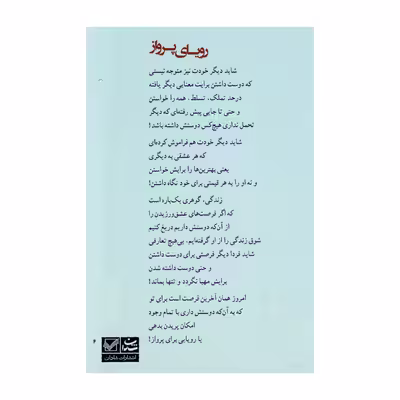 رویـای پـرواز
شاید دیگر خودت نیز متوجه نیستی
که دوست داشتن برایت معنایی دیگر یافته
درحد تملک، تسلط، همه را خواستنِ
و حتی تا جایی پیش رفته‌ای که دیگر
تحمل نداری هیچ‌کس دوستش داشته باشد!
شاید دیگر خودت هم فراموش کرده‌ای
که هر عشقی به دیگری
یعنی بهترین‌ها را برایش خواستن
و نه او را به هر قیمتی برای خود نگاه داشتن!
زندگی، گوهری یک‌باره است
که اگر فرصت‌های عشق‌ورزیدن را
از آن‌که دوستش داریم دریغ کنیم
شوق زندگی را از او گرفته‌ایم، بی‌هیچ تعارفی
شاید فردا دیگر فرصتی برای دوست داشتن
و حتی دوست داشته شدن
برایش مهیا نگردد و تنها بماند!
امروز همان آخرین فرصت است برای تو
که به آن‌که دوستش داری با تمام وجود
امکان پریدن بدهی
یا رویایی برای پرواز!
۴
انتشارات شادان